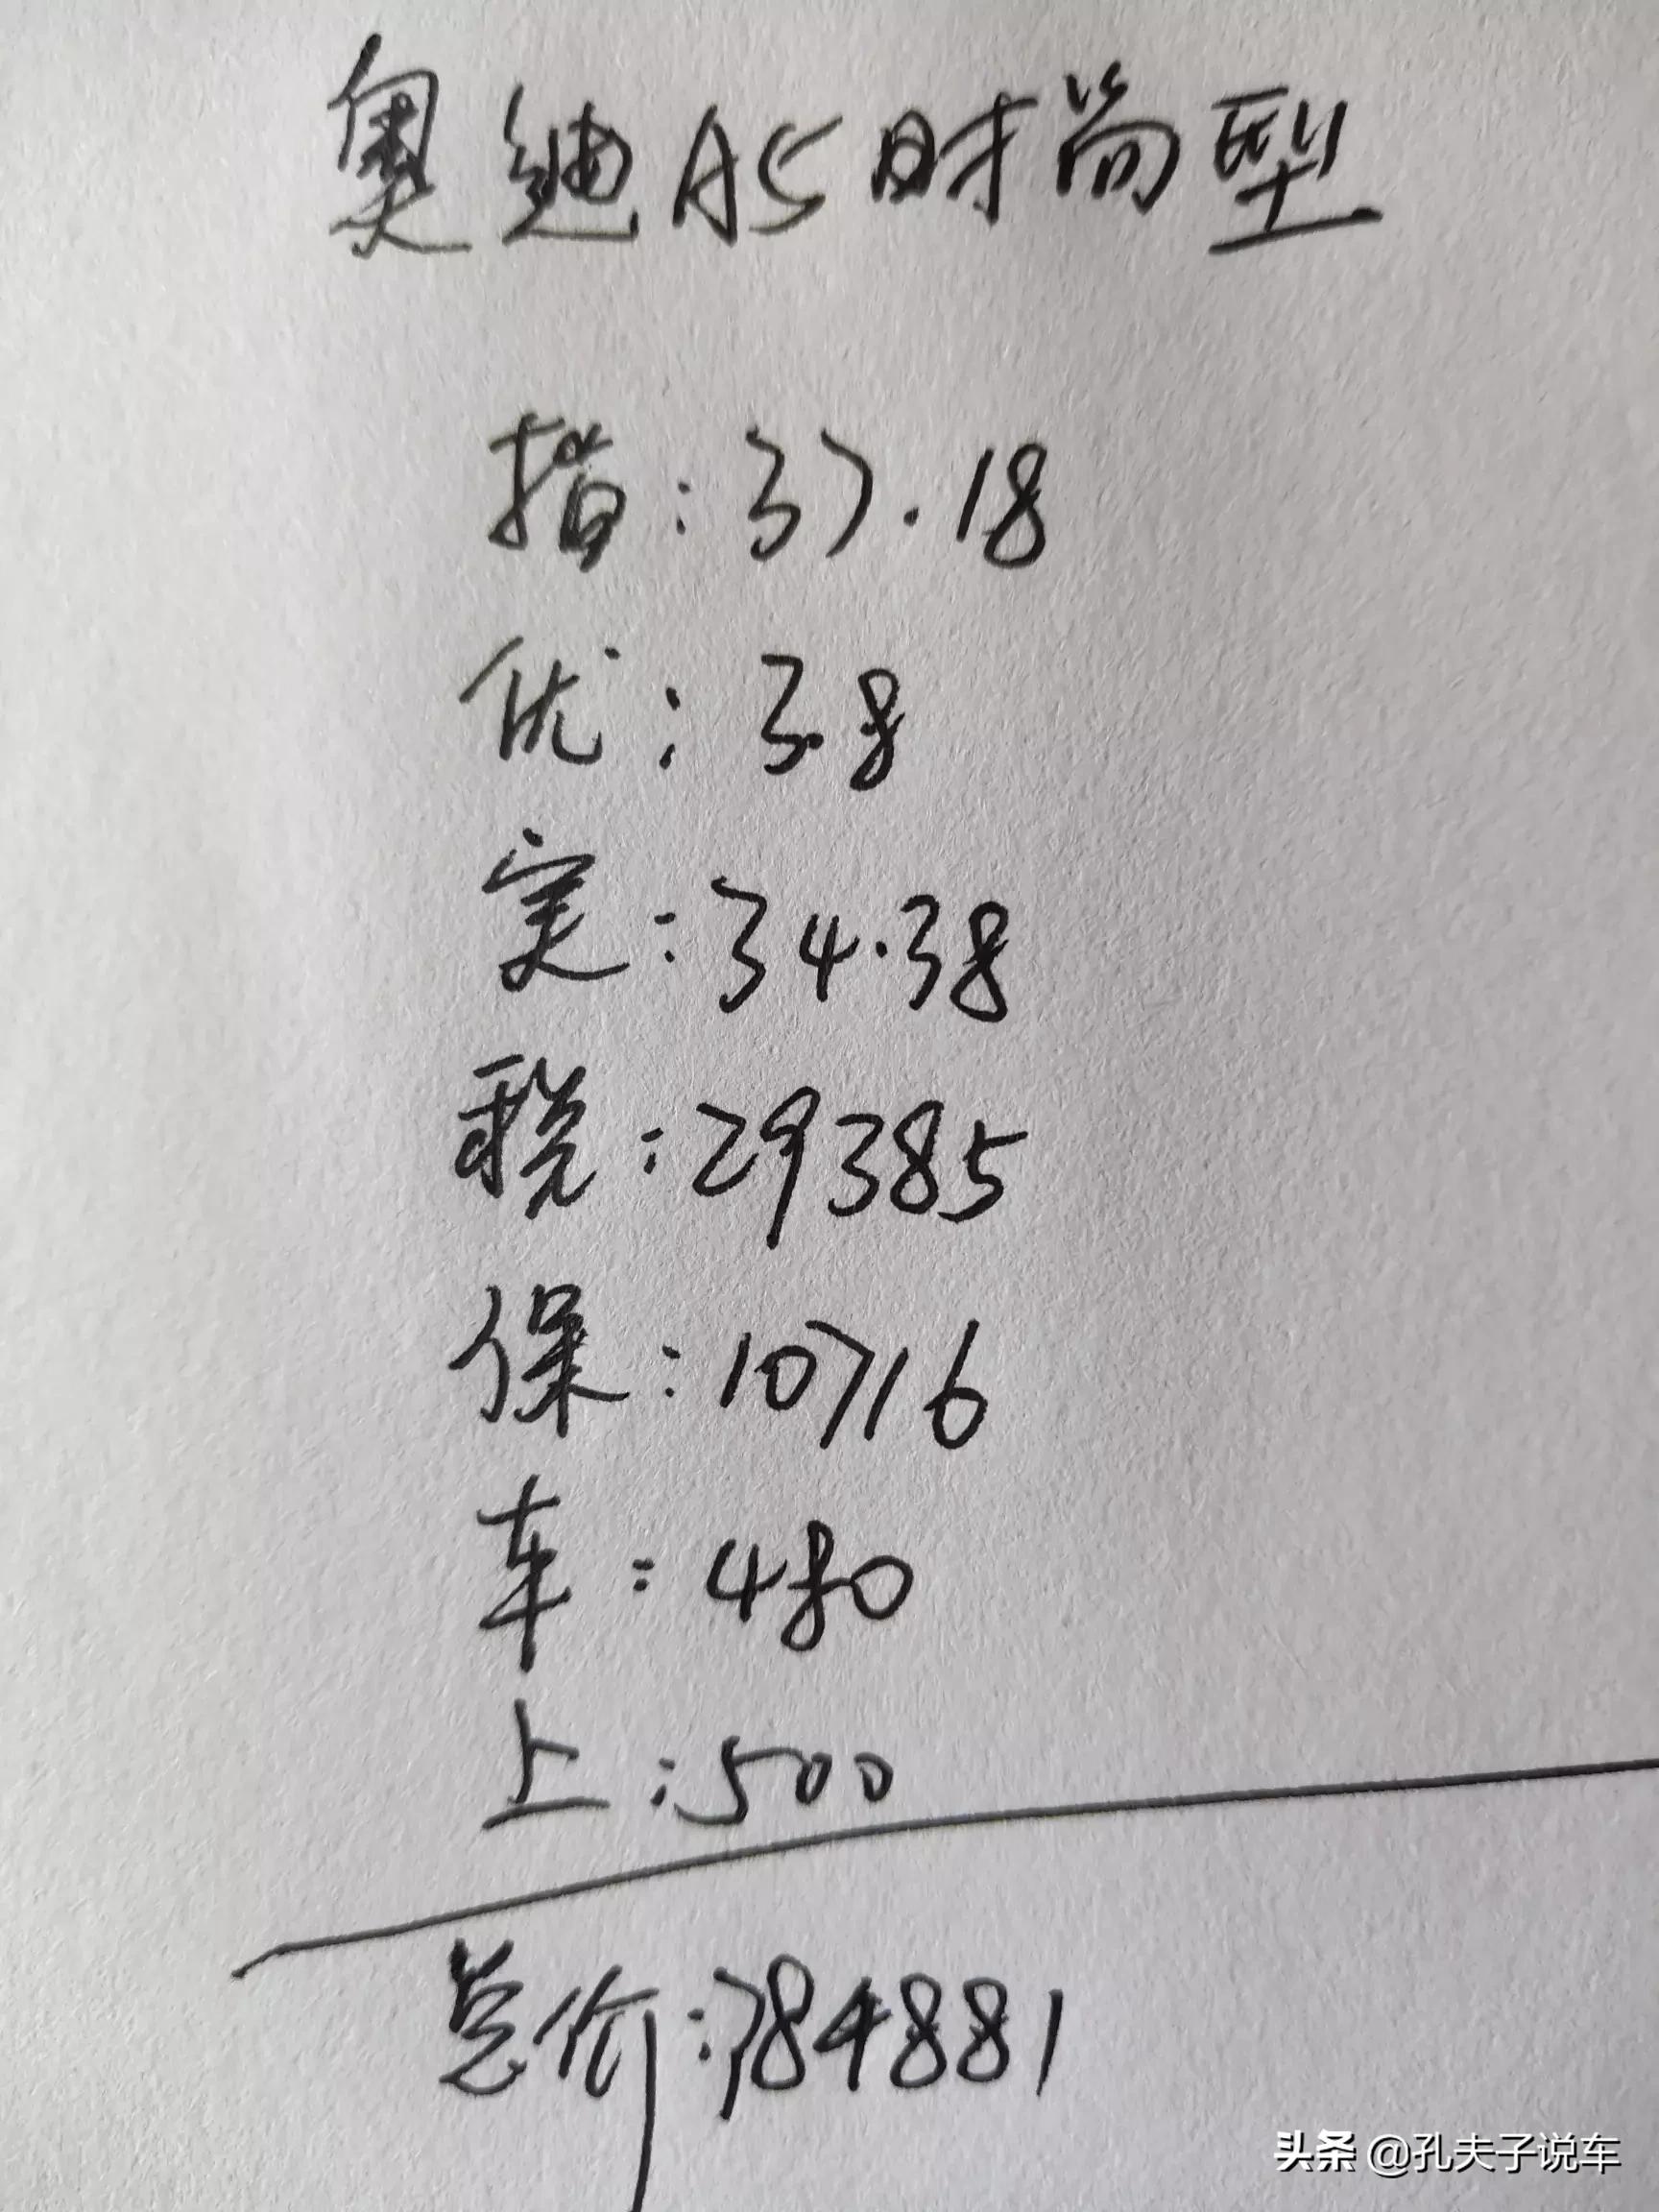 奥迪A5时尚型
指:37.18
优:3.8
实:34.38
税:29385
保:10716
车:480
上:500
总价:384881
头条 @孔夫子说车